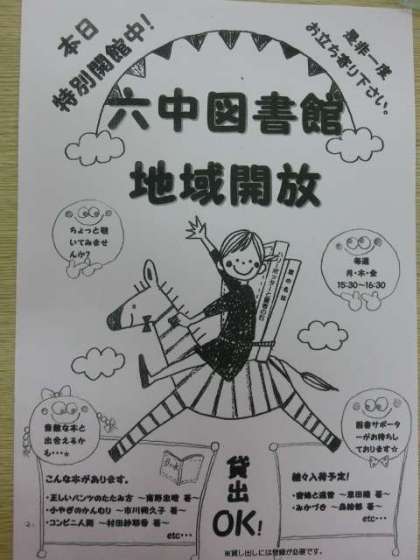 本日
特別開館中!
是非一度
お立ち寄り下さい。
六中図書館
地域開放
ちょっと覗
いてみませ
んか?
毎週
月・木・金
15:30~16:30
君の名は
素敵な本と
出会えるか
も…☆
図書サポータ
ーがお待ちし
ております☆
こんな本があります。
・正しいパンツのたたみ方 ~南野忠晴 著~
・小やぎのかんむり ~市川朔久子 著~
・コンビニ人間 ~村田紗耶香 著~
etc…
貸出
OK!
続々入荷予定!
・蜜蜂と遠雷 ~恩田陸 著~
・みかづき ~森絵都 著~
etc…
※貸し出しには登録が必要です。